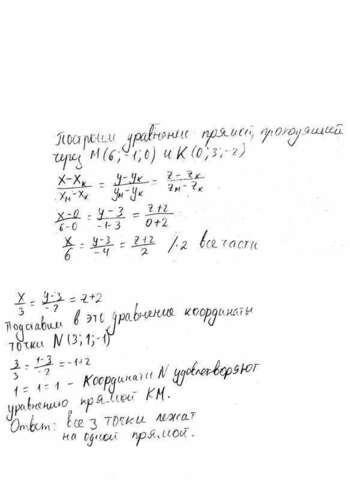 Построим уравнение прямой, проходящей
через M(6;-1;0) и K(0;3;-2)
(x-x_K)/(x_M-x_K) = (y-y_K)/(y_M-y_K) = (z-z_K)/(z_M-z_K)
(x-0)/(6-0) = (y-3)/(-1-3) = (z+2)/(0+2)
x/6 = (y-3)/(-4) = (z+2)/2 /·2 все части
x/3 = (y-3)/(-2) = z+2
Подставим в это уравнение координаты
точки N(3;1;-1)
3/3 = (1-3)/(-2) = -1+2
1 = 1 = 1 - Координаты N удовлетворяют
уравнению прямой KM.
Ответ: все 3 точки лежат
на одной прямой.